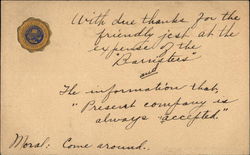 With due thanks for the
friendly jest at the
expense of the
"Barristers"
and
The information that,
"Present company is
always accepted."
Moral: Come around.